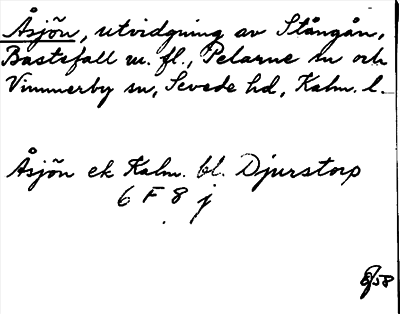 Åsjön, utvidgning av Stångån,
Bastefall m. fl., Pelarne sn och
Vimmerby sn, Sevede hd, Kalm. l.
Åsjön ek Kalm. bl. Djurstorp
6 F 8 j
58